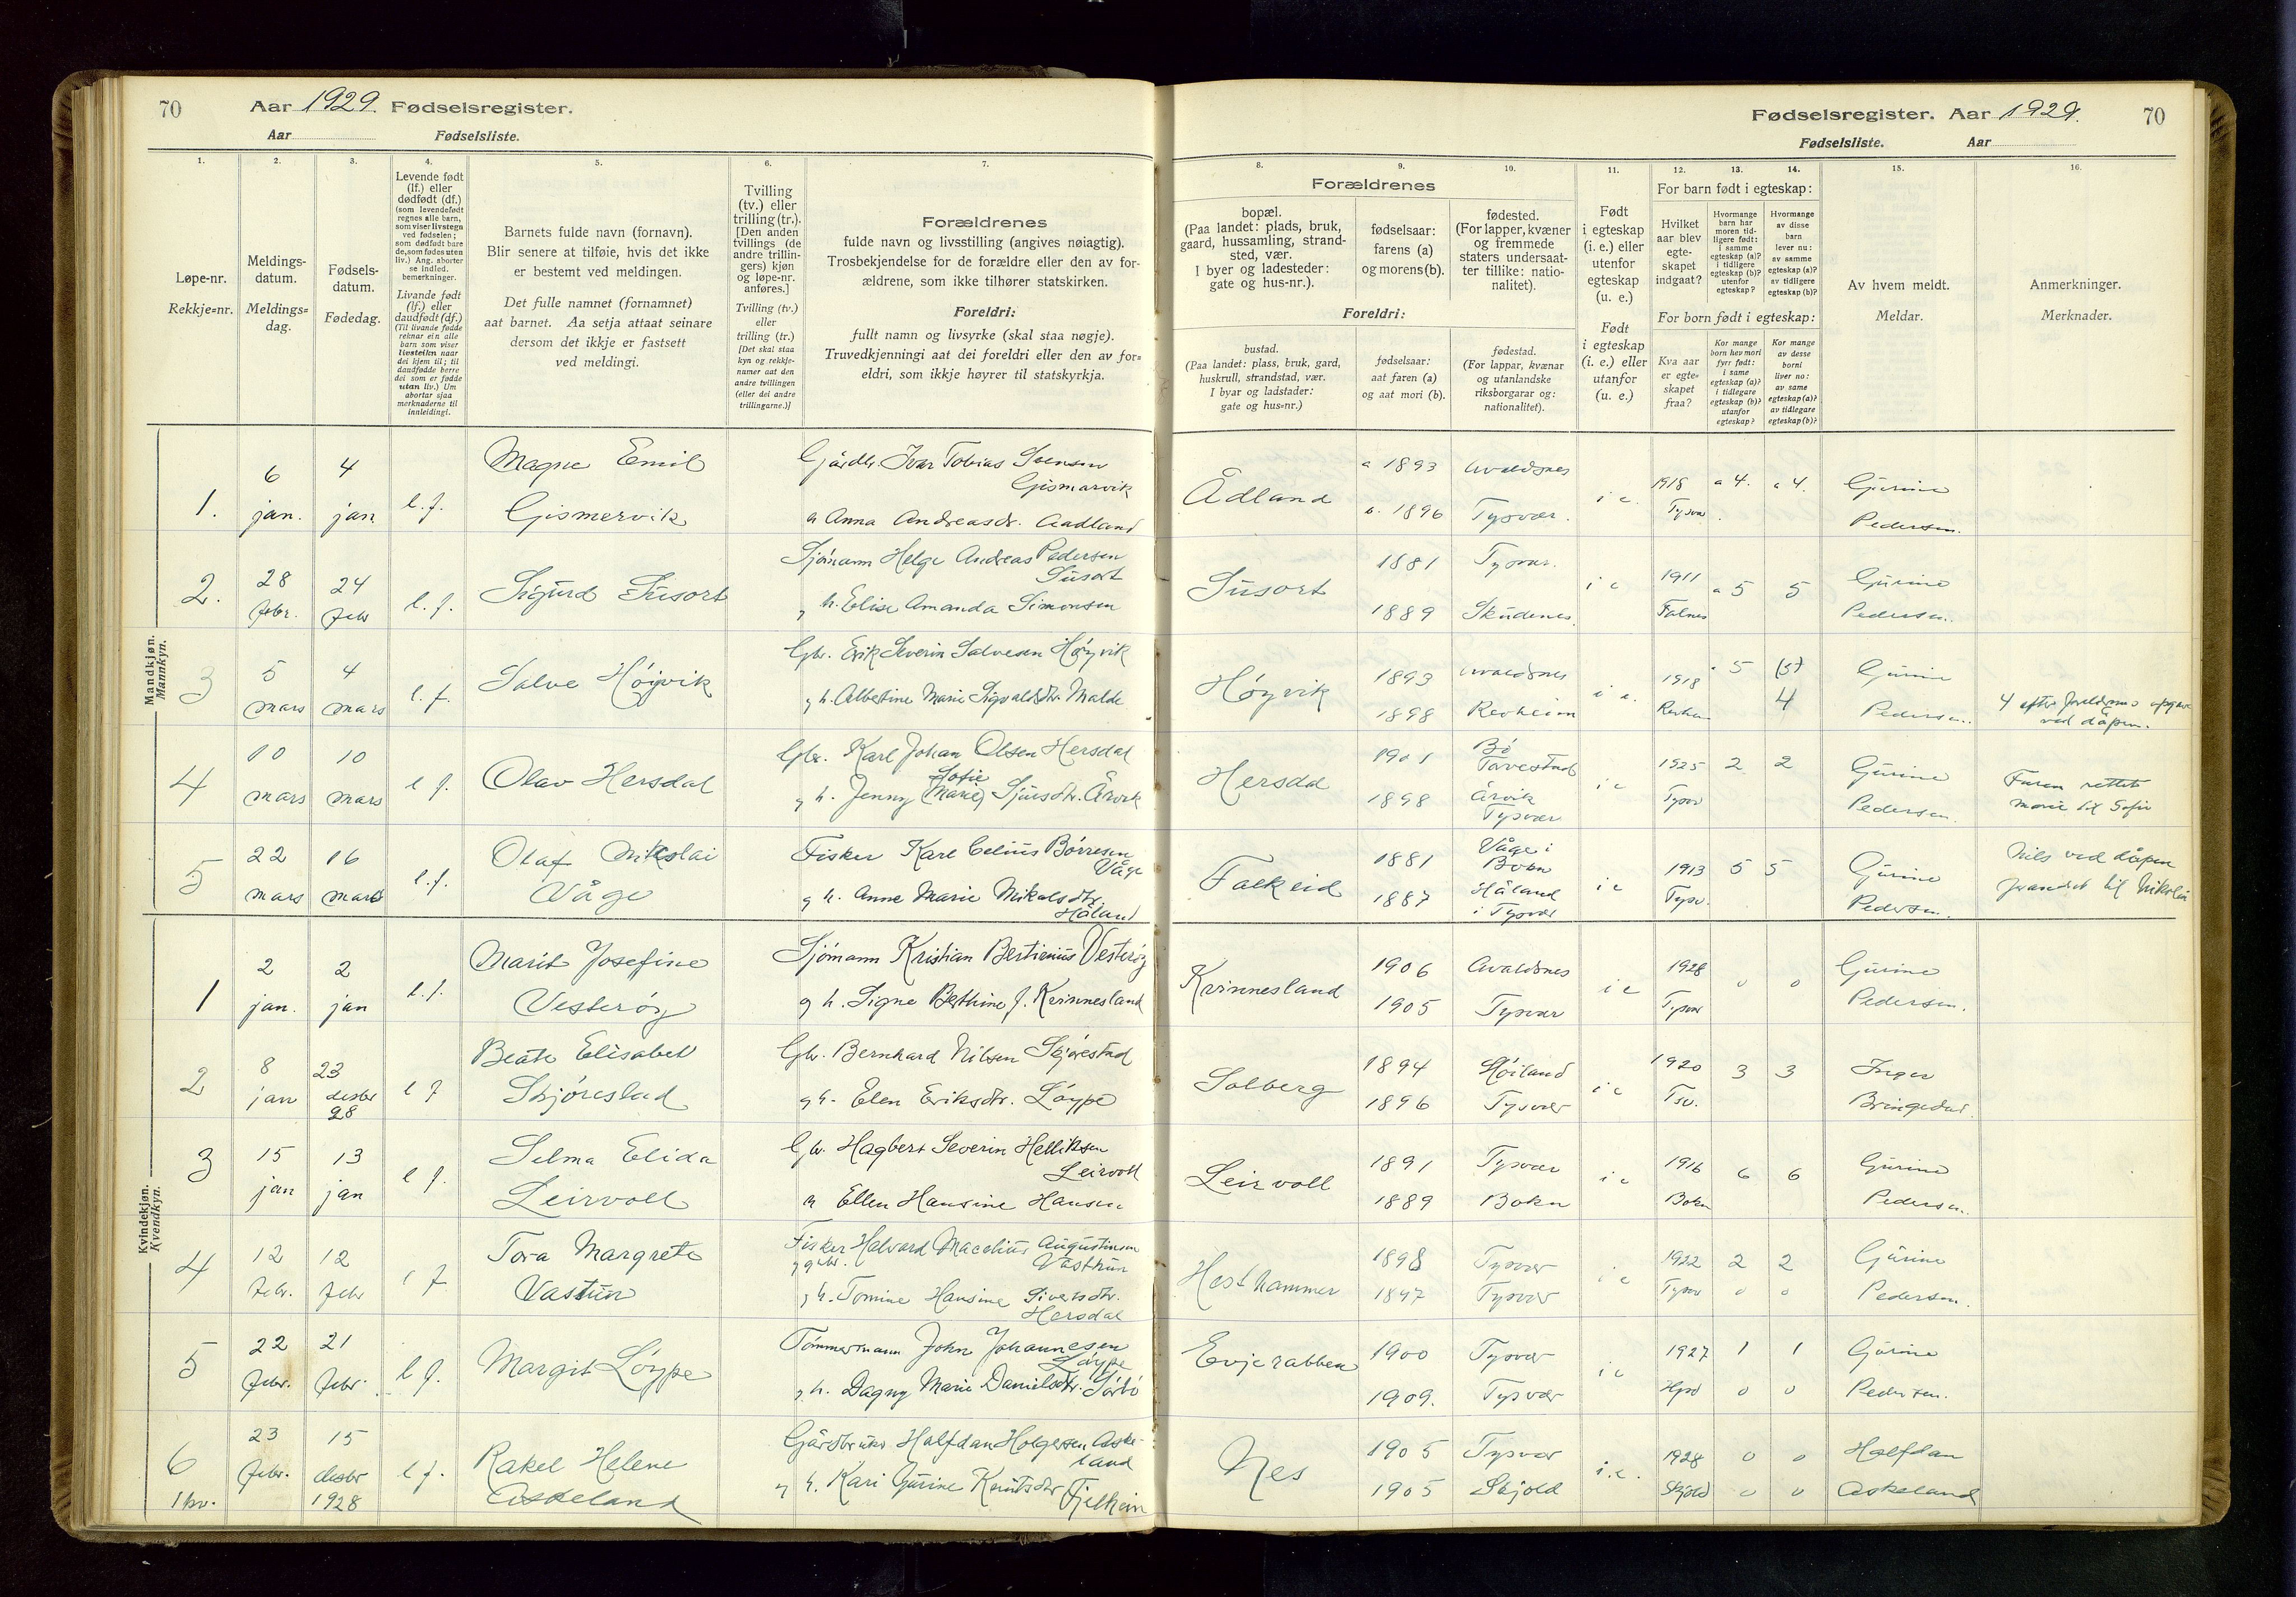 70 Aar 1929. Fødselsregister.
Aar Fødselsliste.
Fødselsregister. Aar 1929. 70
Fødselsliste. Aar
1.
Løpe-nr.
Rekkje-nr.
2.
Meldings-
datum.
Meldings-
dag.
3.
Fødsels-
datum.
Fødedag.
4.
Levende født
(lf.) eller
dødfødt (df.)
(som levendefødt
regnes alle barn,
som viser livstegn
ved fødselen;
som dødfødt bare
de, som fødes uten
liv.) Ang. aborter
se indled.
bemerkninger.
Livande født
(lf.) eller
daudfødt (df.)
(Til livande fødde
reknar ein alle
barn som viser
livsteikn naar
dei kjem til; til
daudfødde berre
dei som er fødde
utan liv.) Um
abortar sjaa
merknaderne til
innleidingi.
5.
Barnets fulde navn (fornavn).
Blir senere at tilføie, hvis det ikke
er bestemt ved meldingen.
Det fulle namnet (fornamnet)
aat barnet. Aa setja attaat seinare
dersom det ikkje er fastsett
ved meldingi.
6.
Tvilling
(tv.) eller
trilling (tr.).
[Den anden
tvillings (de
andre trillin-
gers) kjøn
og løpe-nr.
anføres.]
Tvilling (tv.)
eller
trilling (tr.)
[Det skal staa
kyn og rekkje-
numer aat den
andre tvillingen
(eller dei andre
trillingarne.)]
7.
Forældrenes
fulde navn og livsstilling (angives nøiagtig).
Trosbekjendelse for de forældre eller den av for-
ældrene, som ikke tilhører statskirken.
Foreldri:
fullt namn og livsyrke (skal staa nøgje).
Truvedkjenningi aat dei foreldri eller den av for-
eldri, som ikkje høyrer til statskyrkja.
8.
Forældrenes
bopæl.
(Paa landet: plads, bruk,
gaard, hussamling, strand-
sted, vær.
I byer og ladesteder:
gate og hus-nr.).
Foreldri:
bustad.
(Paa landet: plass, bruk, gard,
huskrull, strandstad, vær.
I byar og ladstader:
gate og hus-nr.)
9.
fødselsaar:
farens (a)
og morens (b).
fødselsaar:
aat faren (a)
og aat mori (b).
10.
fødested.
(For lapper, kvæner
og fremmede
staters undersaat-
ter tillike: natio-
nalitet).
fødestad.
(For lappar, kvænar
og utanlandske
riksborgarar og:
nationalitet).
11.
Født
i egteskap
(i. e.) eller
utenfor
egteskap
(u. e.)
Født
i egteskap
(i. e.) eller
utanfor
(u. e.)
12. 13. 14.
For barn født i egteskap:
Hvilket
aar blev
egte-
skapet
indgaat?
Hvormange
barn har
moren tid-
ligere født:
i samme
egteskap (a)?
i tidligere
egteskap (b)?
utenfor
egteskap?
Hvormange
av disse
barn
lever nu:
av samme
egteskap (a)?
av tidligere
egteskap (b)?
For born født i egteskap:
Kva aar
er egte-
skapet
fraa?
Kor mange
born hev mori
fyrr født:
i same
egteskap (a)?
i tidlegare
egteskap (b)?
utanfor
egteskap?
Kor mange
av desse
borni
liver no:
av same
egteskap (a)?
av tidlegare
egteskap (b)?
15.
Av hvem meldt.
Meldar.
16.
Anmerkninger.
Merknader.
Mandkjøn.
Mannkyn.
1. 6 jan. 4 jan. l. f.
Magne Emil
Gismervik
Gårdbr. Ivar Tobias Svensen
Gismarvik
Anna Andreasdr. Aadland
Ådland a 1893 Avaldsnes
b. 1896 Tysvær.
i e. 1918 a 4. a 4.
Tysvær
Gurine
Pedersen.
2. 28 febr. 24 febr l. f.
Sigurd Susort
Sjømann Helge Andreas Pedersen
Susort
g h. Elise Amanda Simonsen
Susort 1881 Tysvær.
1889 Skudenes.
i e 1911 a 5 5
Falnes
Gurine
Pedersen.
3 5 mars 4 mars l. f.
Salve Høyvik
Gbr. Erik Severin Salvesen Høyvik
g h. Albertine Marie Sigvaldsdtr. Malde
Høyvik 1893 Avaldsnes
1898 Revheim
1918 5 (5)
4
Gurine
Pedersen.
4 efter foreldrenes opgave
ved dåpen.
4 10 mars 10 mars l f.
Olav Hersdal
Gbr. Karl Johan Olsen Hersdal
Sofie
g h. Jenny (Marie) Sjursdtr. Årvik
Hersdal 1901 Bø
Tavestad
1898 Årvik
Tysvær
i e 1925 2 2
Tysv
Gurine
Pedersen.
Faren rettet
Marie til Sofie
5 22 mars 16 mars l. f.
Olaf Nikolai
Våge
Fisker Karl Celius Børresen
Våge
g h. Anne Marie Nikolsdtr.
Håland
Falkeid 1881 Våge i
Bokn
1887 Håland
i Tysvær
i e 1913 5 5
Tysv.
Gurine
Pedersen.
Nils ved dåpen
forandret til Nikolai
Kvindekjøn.
Kvendkyn.
1 2 jan. 2 jan l. f.
Marit Josefine
Vesterøy
Sjømann Kristian Bertinius Vesterøy
g h. Signe Bethine f. Kvinnesland
Kvinnesland 1906 Avaldsnes
1905 Tysvær
i e 1928 0 0
Tysvær
Gurine
Pedersen.
2 8 jan 23 desbr 28 l f
Beate Elisabet
Skjørestad
Gbr. Bernhard Nilsen Skjørestad
g h. Elen Eriksdtr. Løype
Solberg 1894 Høiland
1896 Tysvær
i e 1920 3 3
Tsv.
Inger
Bringedal.
3 15 jan 13 jan l f.
Selma Elida
Leirvoll
Gbr. Hagbert Severin Helliksen
Leirvoll
Ellen Hansine Hansen
Leirvoll 1891 Tysvær
1889 Bokn
i e 1916 6 6
Bokn
Gurine
Pedersen.
4 12 febr. 12 febr l f.
Tora Margrete
Vastun
Fisker Halvard Macelius Augustinsen
g gbr. Vasthun
g h. Tomine Hansine Sivertsdtr.
Hersdal
Hesthammer 1898 Tysvær
1897 Tysvær
i e 1922 2 2
Tysv 0 0
Gurine
Pedersen.
5 22 febr. 21 febr. l f.
Margit Løype
Tømmermann John Johannesen
Løype
g h. Dagny Marie Danielsdtr. Sørbø
Evjerabben 1900 Tysvær
1909. Tysvær
i e 1927 1 1
0 0
Gurine
Pedersen.
6 1kv. 23 febr. 15 desbr 1928 l f.
Rakel Helene
Askeland
Gårdbruker Halfdan Holgersen Aske-
land
g h. Kari Gurine Knutsdtr Fjelheim
Nes 1905 Tysvær
1905 Skjold
i. e. 1928 0 0
Skjold 0 0
Halfdan
Askeland